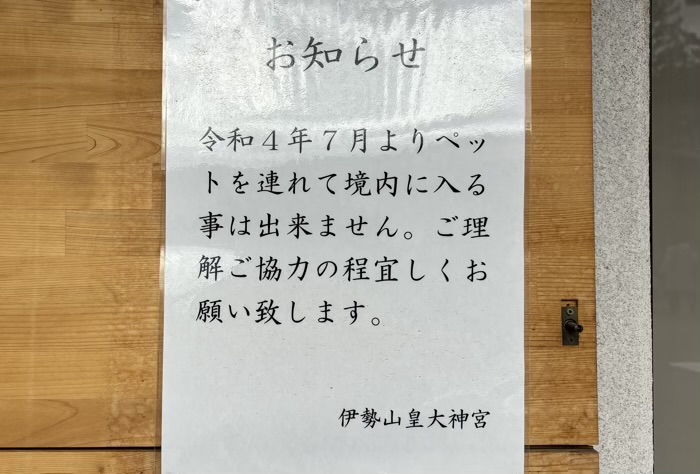 お知らせ
令和４年７月よりペッ
トを連れて境内に入る
事は出来ません。ご理
解ご協力の程宜しくお
願い致します。
伊勢山皇大神宮